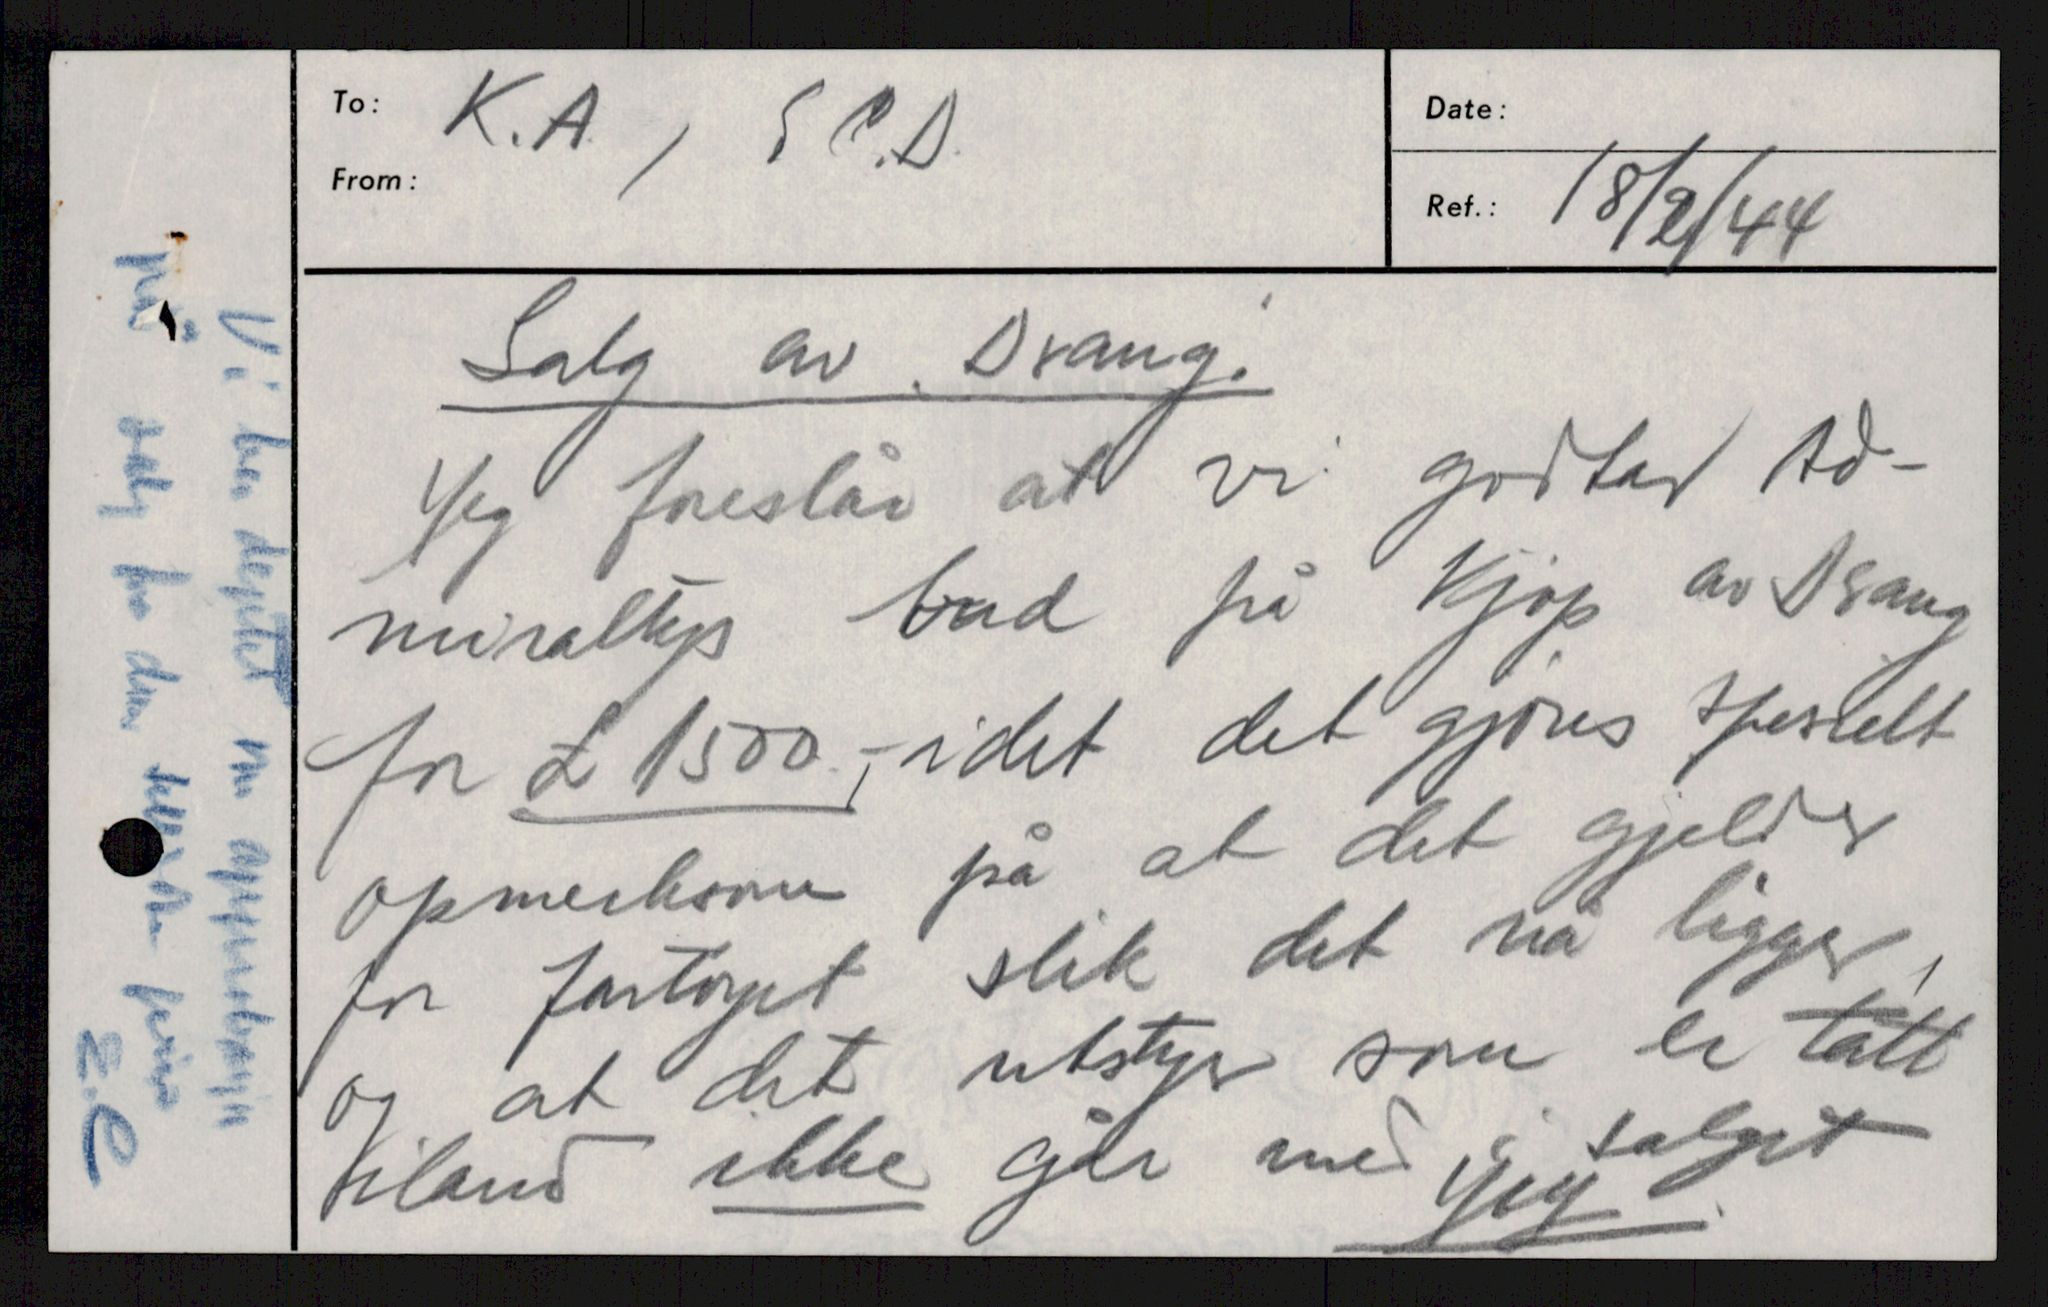 To: K.A., S.C.D.
From:
Date:
Ref.: 18/9/44
Salg av "Draug".
Jeg foreslår at vi godtar Ad-
miraltys bud på kjøp av Draug
for £ 1500,- idet det gjøres spesielt
opmerksom på at det gjelder
for fartøyet slik det nå ligger,
og at det utstyr som er tatt
iland ikke går med i salget
Vi har
på salg for den
E.C